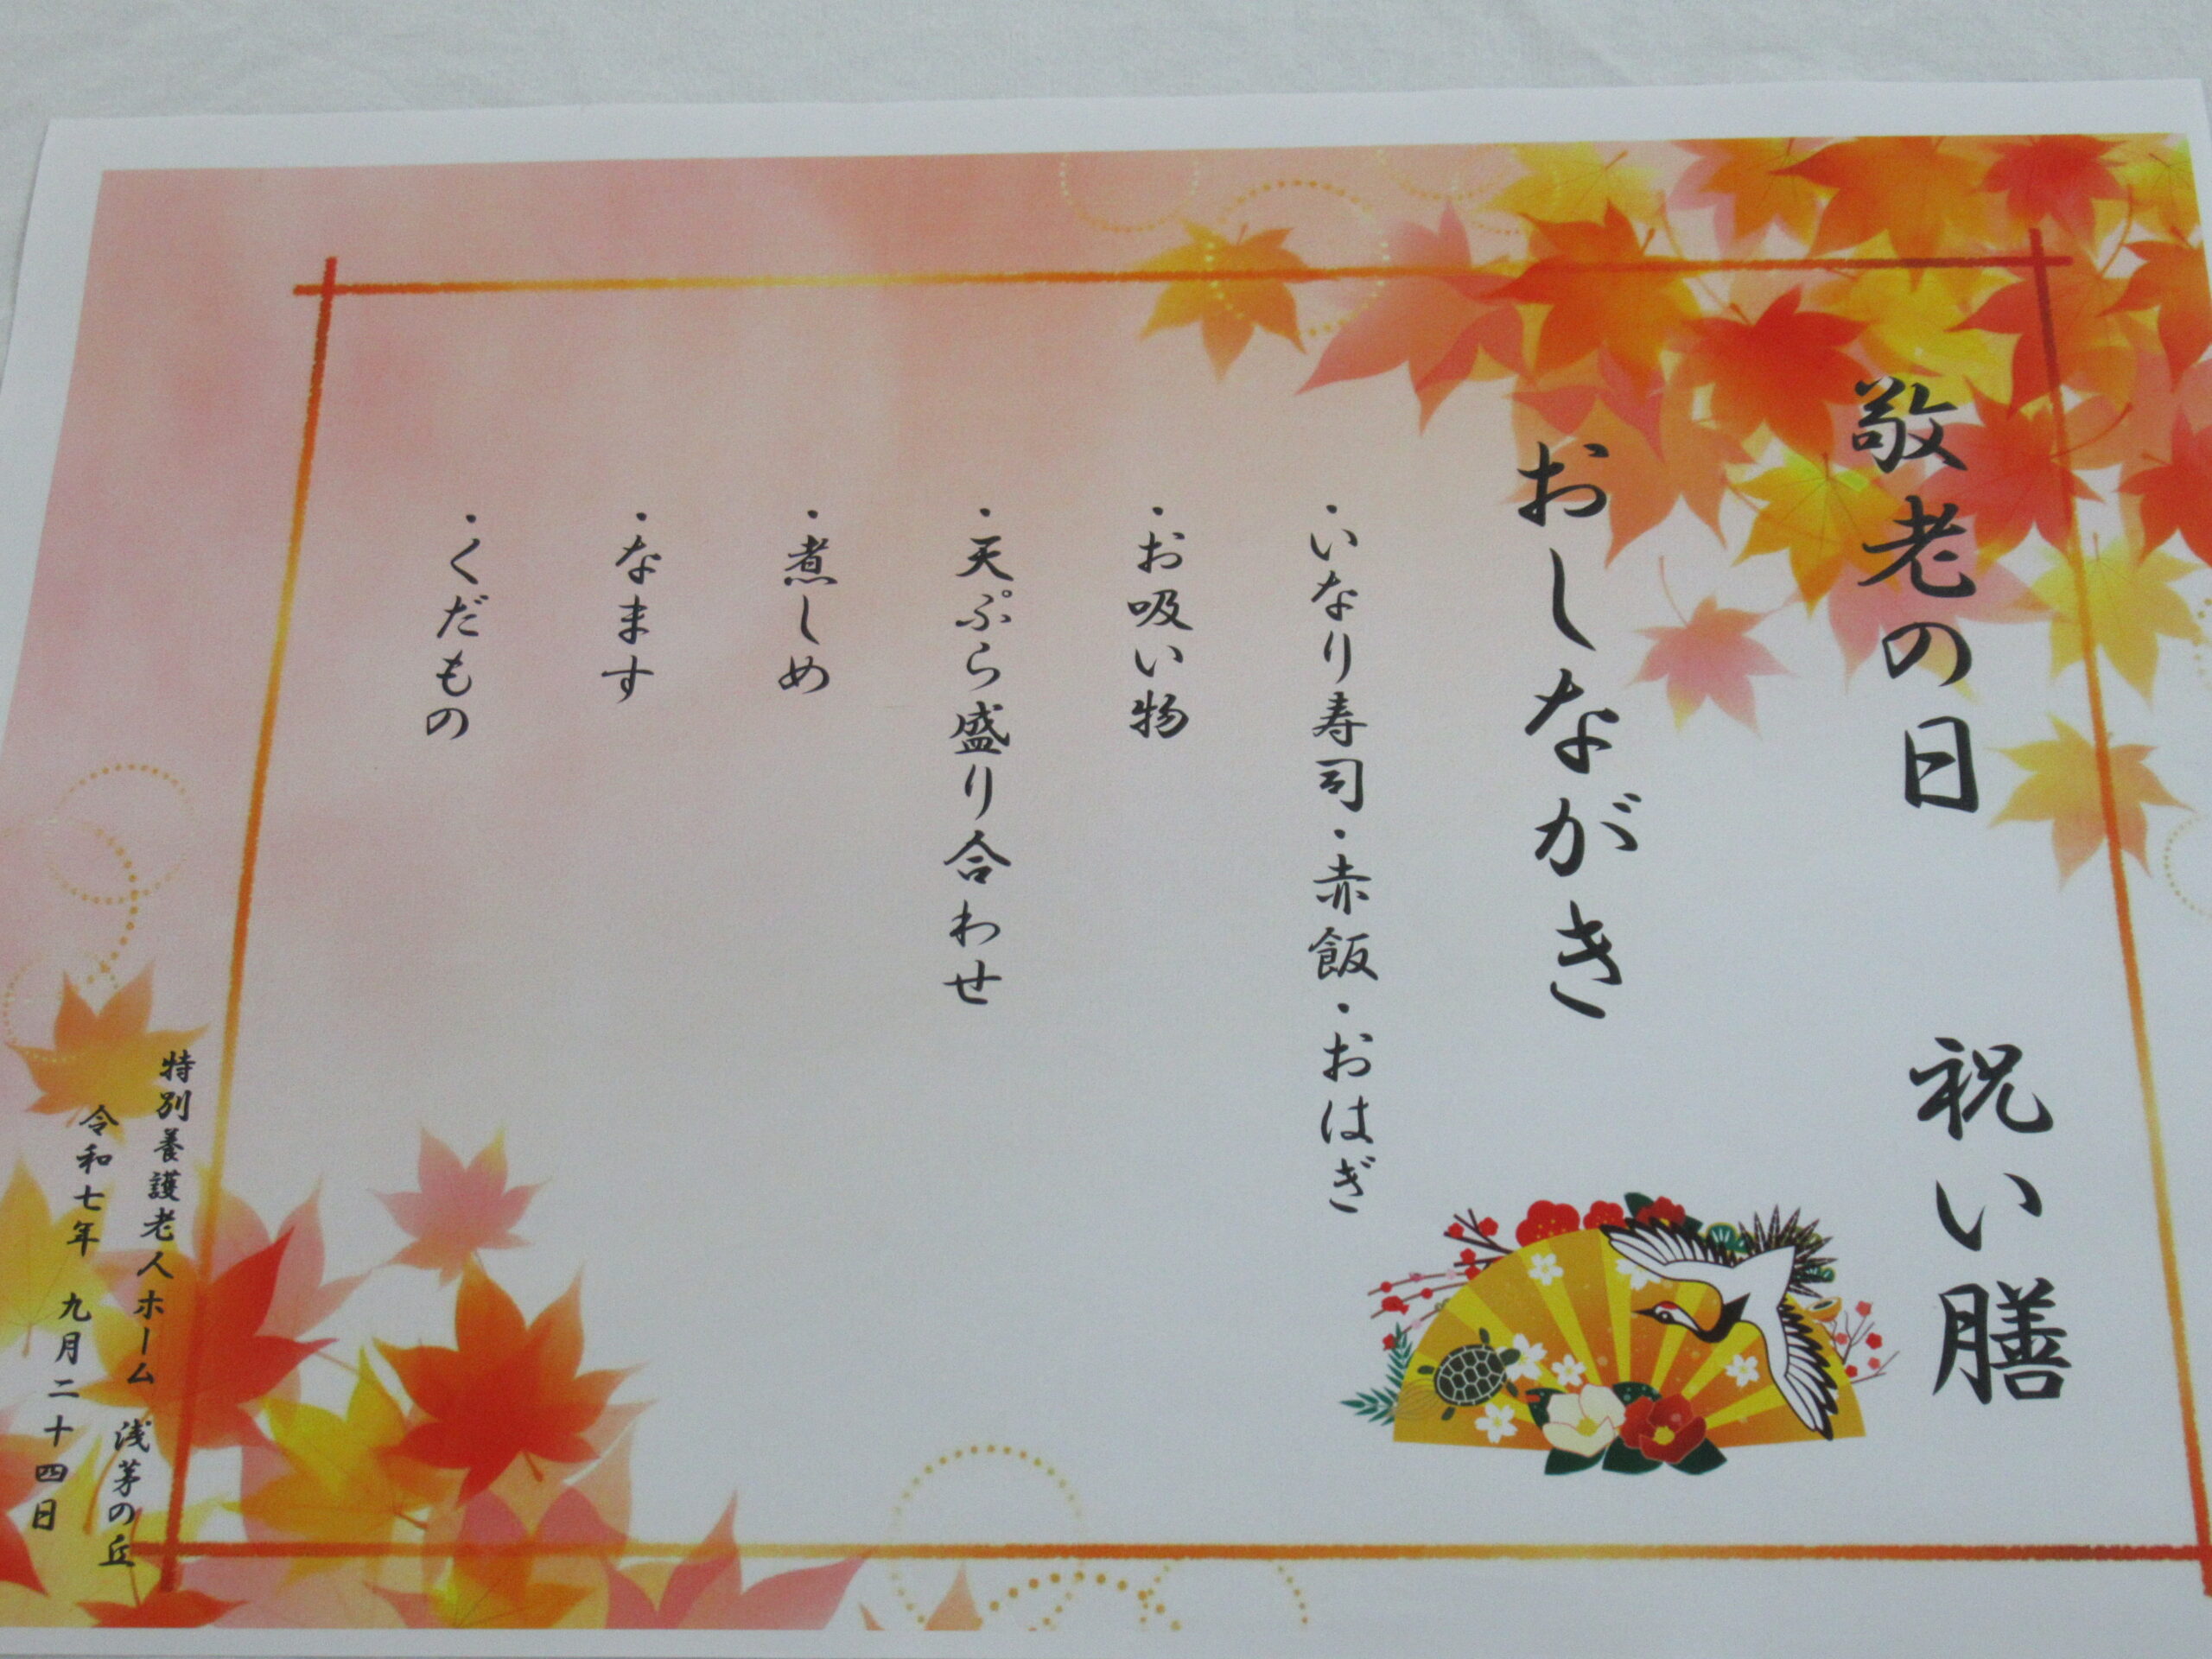 敬老の日　祝い膳
おしながき
・いなり寿司・赤飯・おはぎ
・お吸い物
・天ぷら盛り合わせ
・煮しめ
・なます
・くだもの
特別養護老人ホーム　浅茅の丘
令和七年　九月二十四日